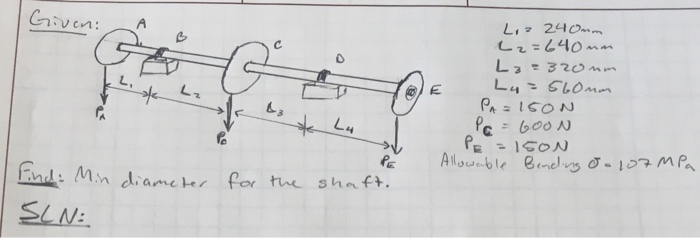 Given:
A
B
C
D
E
L₁
L₂
L₃
L₄
P_A
P_C
P_E
L₁ = 240mm
L₂ = 640mm
L₃ = 320mm
L₄ = 560mm
P_A = 150N
P_C = 600N
P_E = 150N
Allowable Bending σ = 107 MPa
Find: Min diameter for the shaft.
SLN: